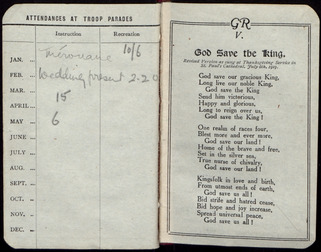 ATTENDANCES AT TROOP PARADES
Instruction Recreation
JAN. ... 10/6
FEB. ... Wedding present 2-2-0
MAR. ... 15
APRIL ...
MAY ... 6
JUNE ...
JULY ...
AUG. ...
SEPT. ...
OCT. ...
NOV. ...
DEC. ...
GR
V.
God Save the King.
Revised Version as sung at Thanksgiving Service in
St. Paul's Cathedral, July 6th, 1919.
God save our gracious King,
Long live our noble King,
God save the King
Send him victorious,
Happy and glorious,
Long to reign over us,
God save the King!
One realm of races four,
Blest more and ever more,
God save our land!
Home of the brave and free,
Set in the silver sea,
True nurse of chivalry,
God save our land!
Kingsfolk in love and birth,
From utmost ends of earth,
God save us all!
Bid strife and hatred cease,
Bid hope and joy increase,
Spread universal peace,
God save us all!